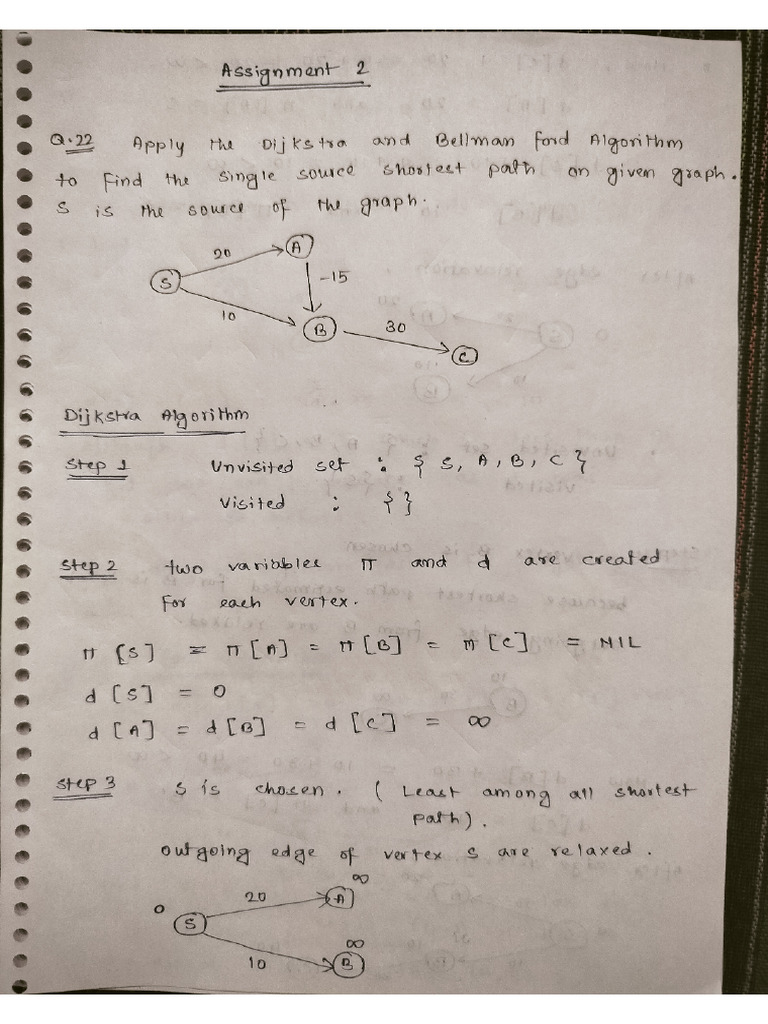 Assignment 2
Q.22 Apply the Dijkstra and Bellman ford Algorithm
to find the single source shortest path on given graph.
S is the source of the graph.
20
A
S
-15
10
B
30
C
Dijkstra Algorithm
Step 1 Unvisited set : { S, A, B, C }
Visited : { }
Step 2 two variables π and d are created
for each vertex.
π [S] = π [A] = π [B] = π [C] = NIL
d [S] = 0
d [A] = d [B] = d [C] = ∞
Step 3 S is chosen. ( Least among all shortest
path ).
outgoing edge of vertex S are relaxed.
∞
20
A
0
S
∞
10
B